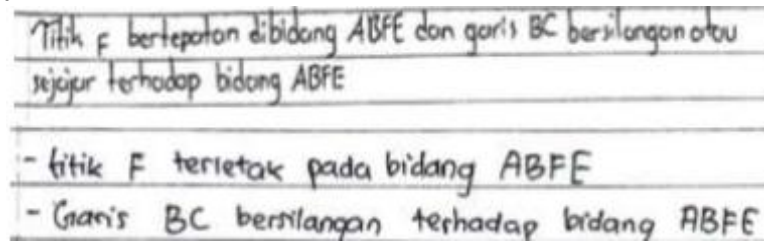 Titik F bertepatan dibidang ABFE dan garis BC bersilangan atau
sejajar terhadap bidang ABFE
- titik F terletak pada bidang ABFE
- Garis BC bersilangan terhadap bidang ABFE